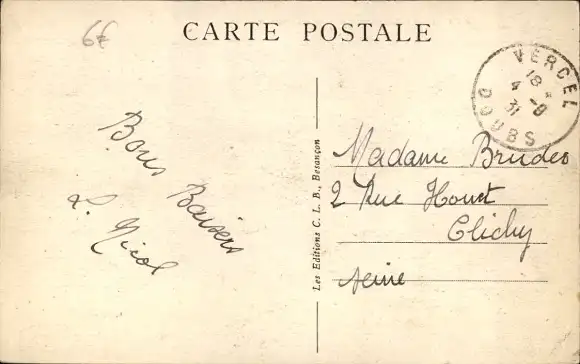 6€
CARTE POSTALE
VERCEL
18 *
4 -8
31
DOUBS
Bons Baisers
L. Nicol
Les Editions C. L. B., Besançon
Madame Brudeo
2 Rue Houet
Clichy
Seine